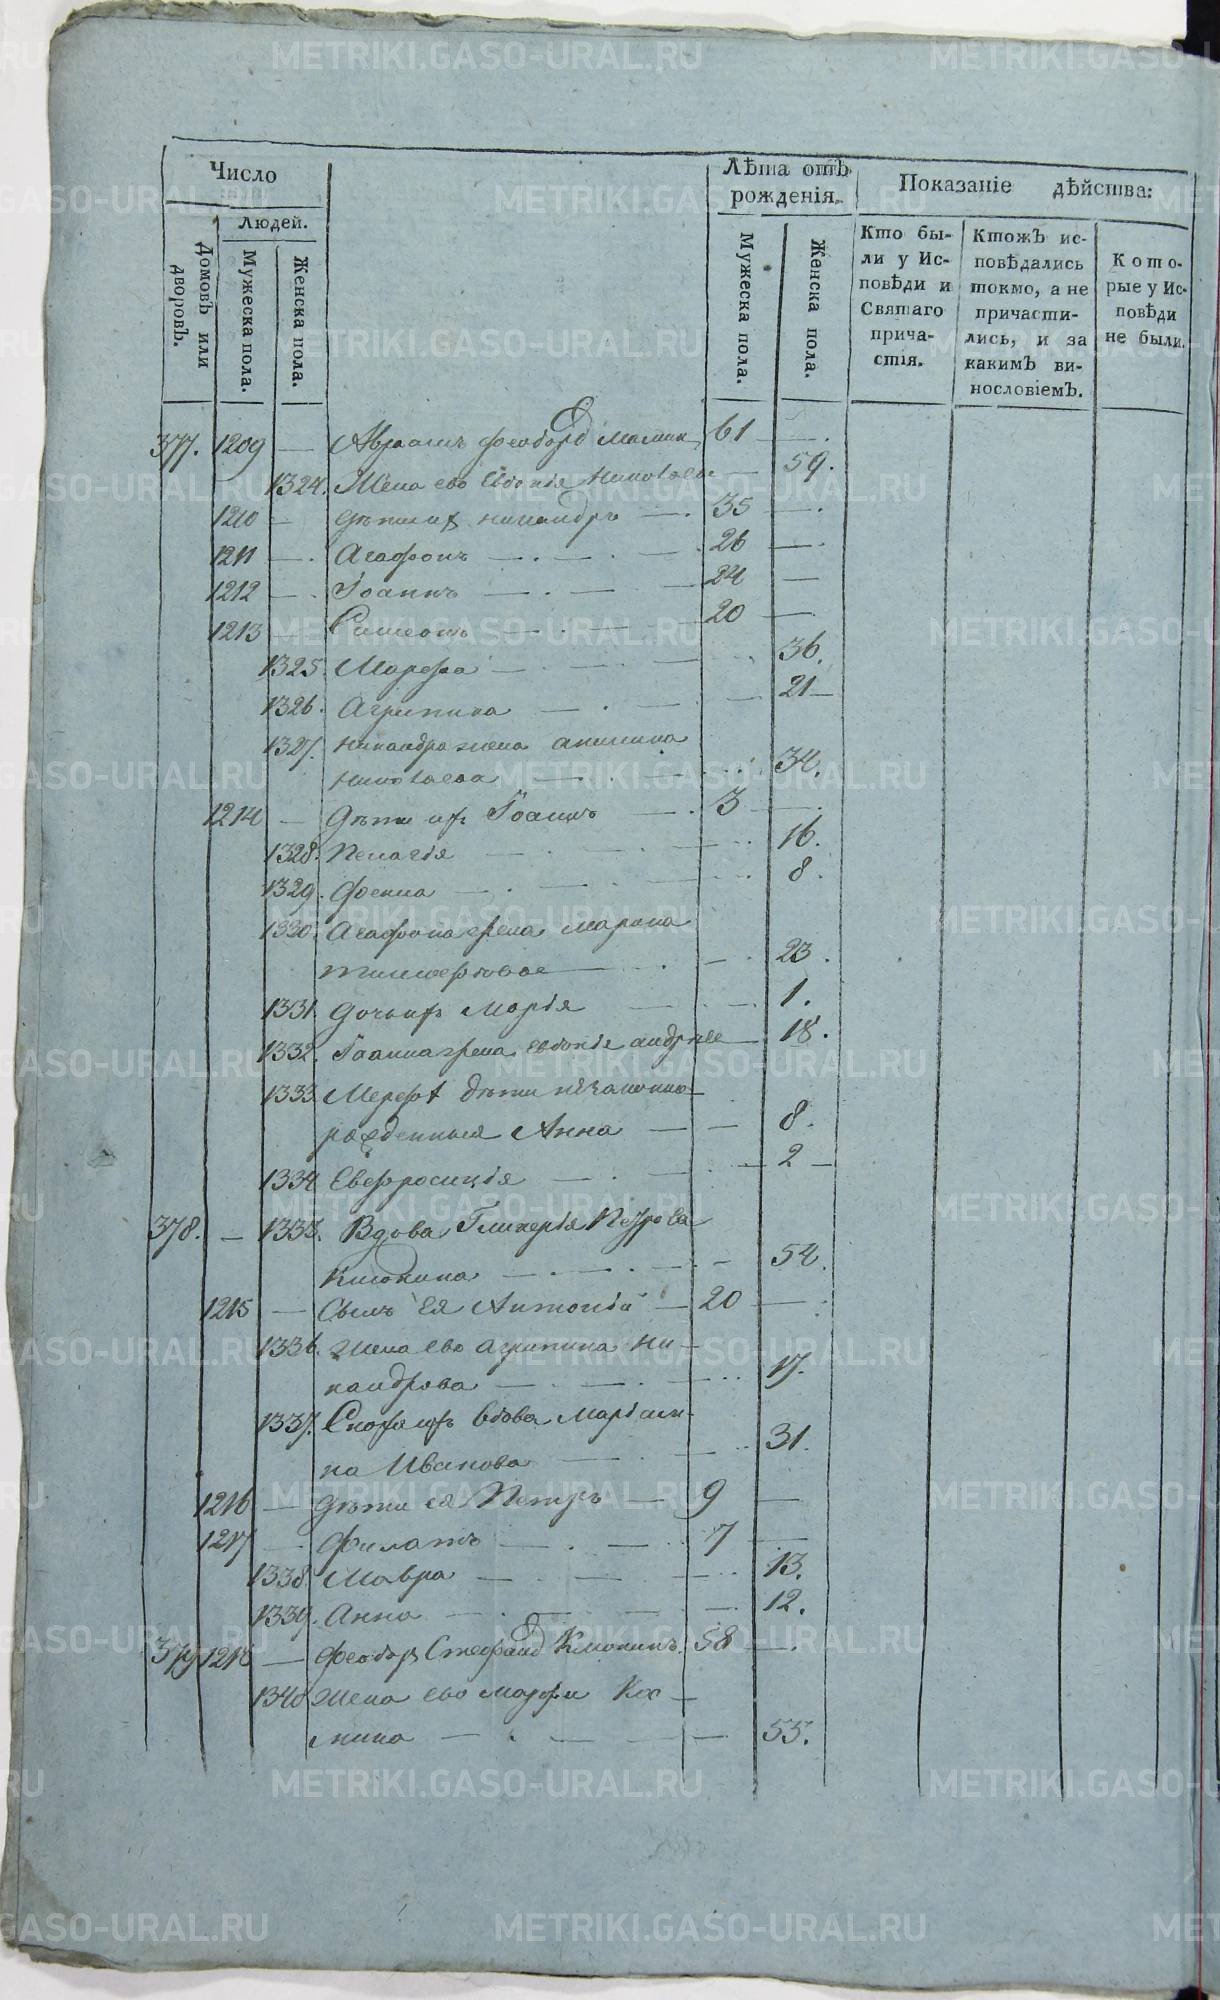 Число
Людей.
Домовъ или дворовъ.
Мужеска пола.
Женска пола.
Лѣта отъ рожденія.
Мужеска пола.
Женска пола.
Показаніе дѣйства:
Кто бы-
ли у Ис-
повѣди и
Святаго
прича-
стія.
Ктожъ ис-
повѣдались
токмо, а не
причасти-
лись, и за
какимъ ви-
нословіемъ.
Кото-
рые у Ис-
повѣди
не были.
377. 1209 — Авраамъ Феодоро 61 — .
1324. Жена ево Евдокія Николаева — 59.
1210 — Дѣти их Никандръ — 35 — .
1211 — Агафонъ — 26 — .
1212 — Іоаннъ — 24 —
1213 — Симеонъ — 20 —
1325. Марфа — 36.
1326. Агрипина — 21 —
1327. Никандра жена Акилина
Николаева — 34.
1214 — Дѣти ихъ Іоаннъ — 3 — .
1328. Пелагія — 16.
1329. Фекла — 8.
1330. Агафона жена Марина
— 23.
1331. Дочь ихъ Марія — 1.
1332. Іоанна жена Евдокія Андрѣе — 18.
1333. дѣти незаконно-
рожденныя Анна — 8.
1334 Евфросинія — 2 —
378. — 1335. Вдова Гликерія Петрова
Клюкина — 54.
1215 — Сынъ Ея Антоній — 20 — .
1336. Жена ево Агрипина Ни-
кандрова — 17.
1337. Сноха ихъ вдова Маріам-
на Иванова — 31.
1216 — Дѣти ея Петръ — 9 —
1217 — Филатъ — 7 —
1338 Мавра — 13.
1339. Анна — 12.
379 1218 — Феодоръ Стефано Клюкинъ. 58 — .
1340 Жена ево Марфа Кос-
мина — 55.
METRIKI.GASO-URAL.RU